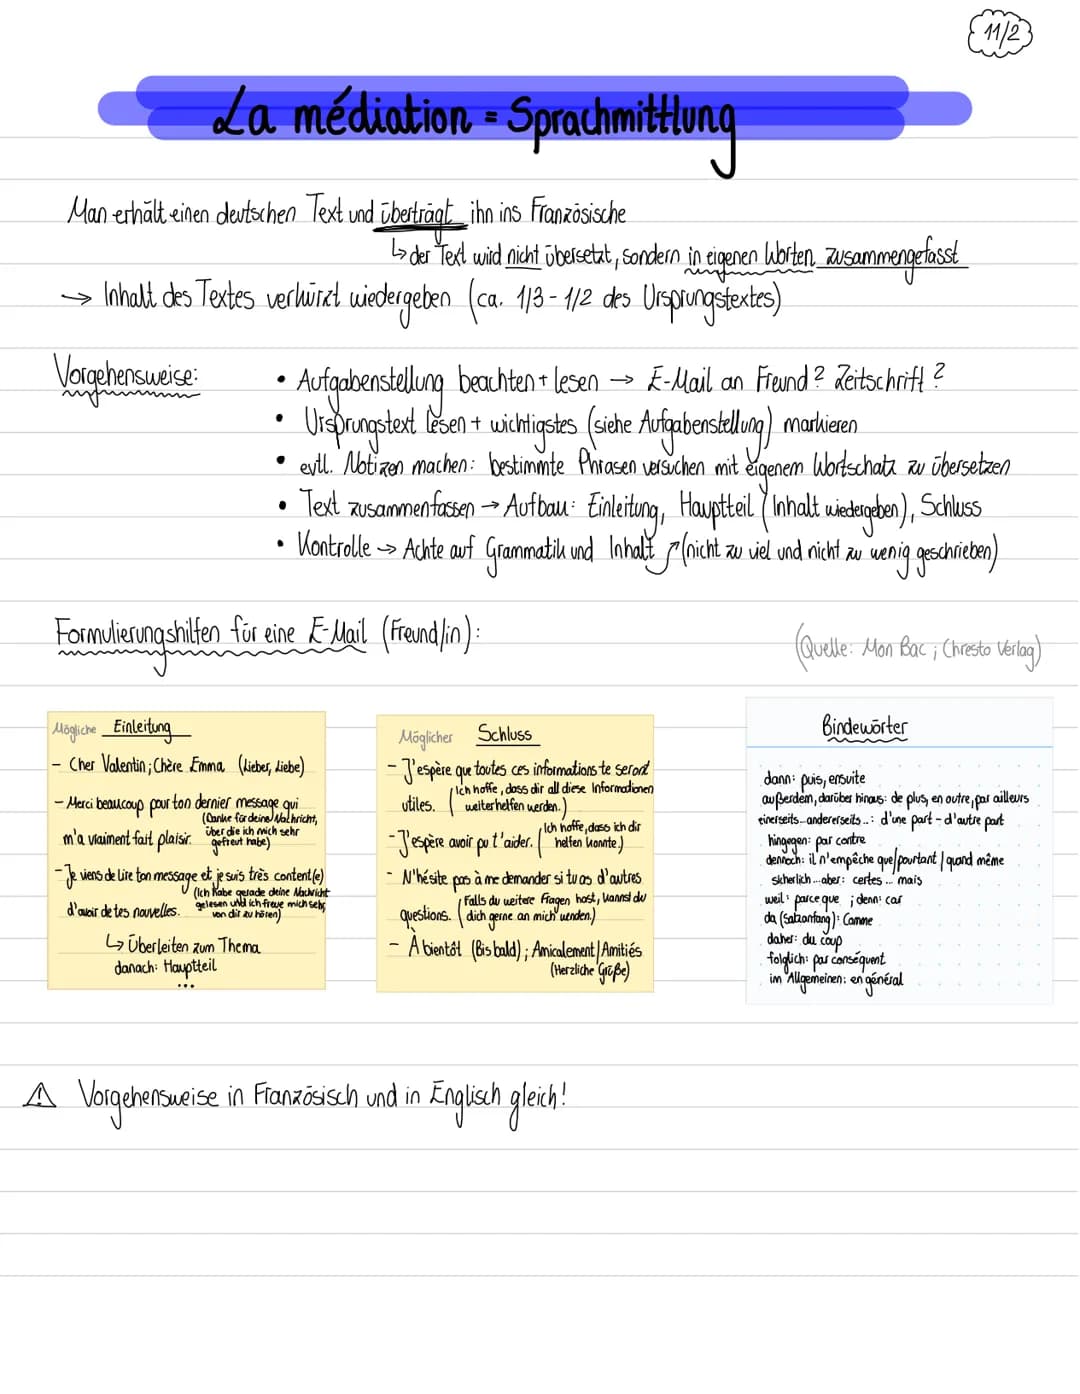 11/2
La médiation = Sprachmittlung
Man erhält einen deutschen Text und überträgt ihn ins Französische
↳ der Text wird nicht übersetzt, sondern in eigenen Worten zusammengefasst
→ Inhalt des Textes verkürzt wiedergeben (ca. 1/3 - 1/2 des Ursprungstextes)
Vorgehensweise:
• Aufgabenstellung beachten + lesen → E-Mail an Freund? Zeitschrift?
• Ursprungstext lesen + wichtigstes (siehe Aufgabenstellung) markieren
• evtl. Notizen machen: bestimmte Phrasen versuchen mit eigenem Wortschatz zu übersetzen
• Text zusammenfassen → Aufbau: Einleitung, Hauptteil (Inhalt wiedergeben), Schluss
• Kontrolle → Achte auf Grammatik und Inhalt ↗ (nicht zu viel und nicht zu wenig geschrieben)
Formulierungshilfen für eine E-Mail (Freund/in):
(Quelle: Mon Bac; Chresto Verlag)
Mögliche Einleitung
- Cher Valentin; Chère Emma (Lieber, Liebe)
- Merci beaucoup pour ton dernier message qui
m'a vraiment fait plaisir.
(Danke für deine Nachricht,
über die ich mich sehr
gefreut habe)
- Je viens de lire ton message et je suis très content(e)
d'avoir de tes nouvelles.
(Ich habe gerade deine Nachricht
gelesen und ich freue mich sehr,
von dir zu hören)
↳ Überleiten zum Thema
danach: Hauptteil
...
Möglicher Schluss
- J'espère que toutes ces informations te seront
utiles.
(Ich hoffe, dass dir all diese Informationen
weiterhelfen werden.)
- J'espère avoir pu t'aider.
(Ich hoffe, dass ich dir
helfen konnte.)
- N'hésite pas à me demander si tu as d'autres
questions.
(Falls du weitere Fragen hast, kannst du
dich gerne an mich wenden.)
- À bientôt (Bis bald); Amicalement/Amitiés
(Herzliche Grüße)
Bindewörter
dann: puis, ensuite
außerdem, darüber hinaus: de plus, en outre, par ailleurs
einerseits...andererseits...: d'une part - d'autre part
hingegen: par contre
dennoch: il n'empêche que/pourtant/quand même
sicherlich...aber: certes ... mais
weil: parce que ; denn: car
da (Satzanfang): Comme
daher: du coup
folglich: par conséquent
im Allgemeinen: en général
⚠ Vorgehensweise in Französisch und in Englisch gleich!